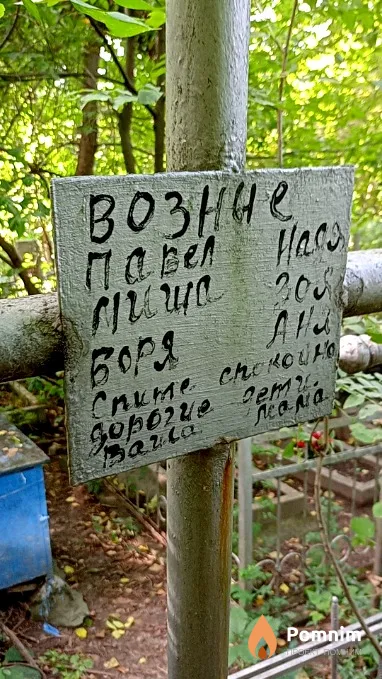 ВОЗНЫЕ
ПАВЕЛ НАДЯ
МИША ЗОЯ
БОРЯ АНЯ
Спите спокойно
дорогие дети.
Ваша мама
Pomnim